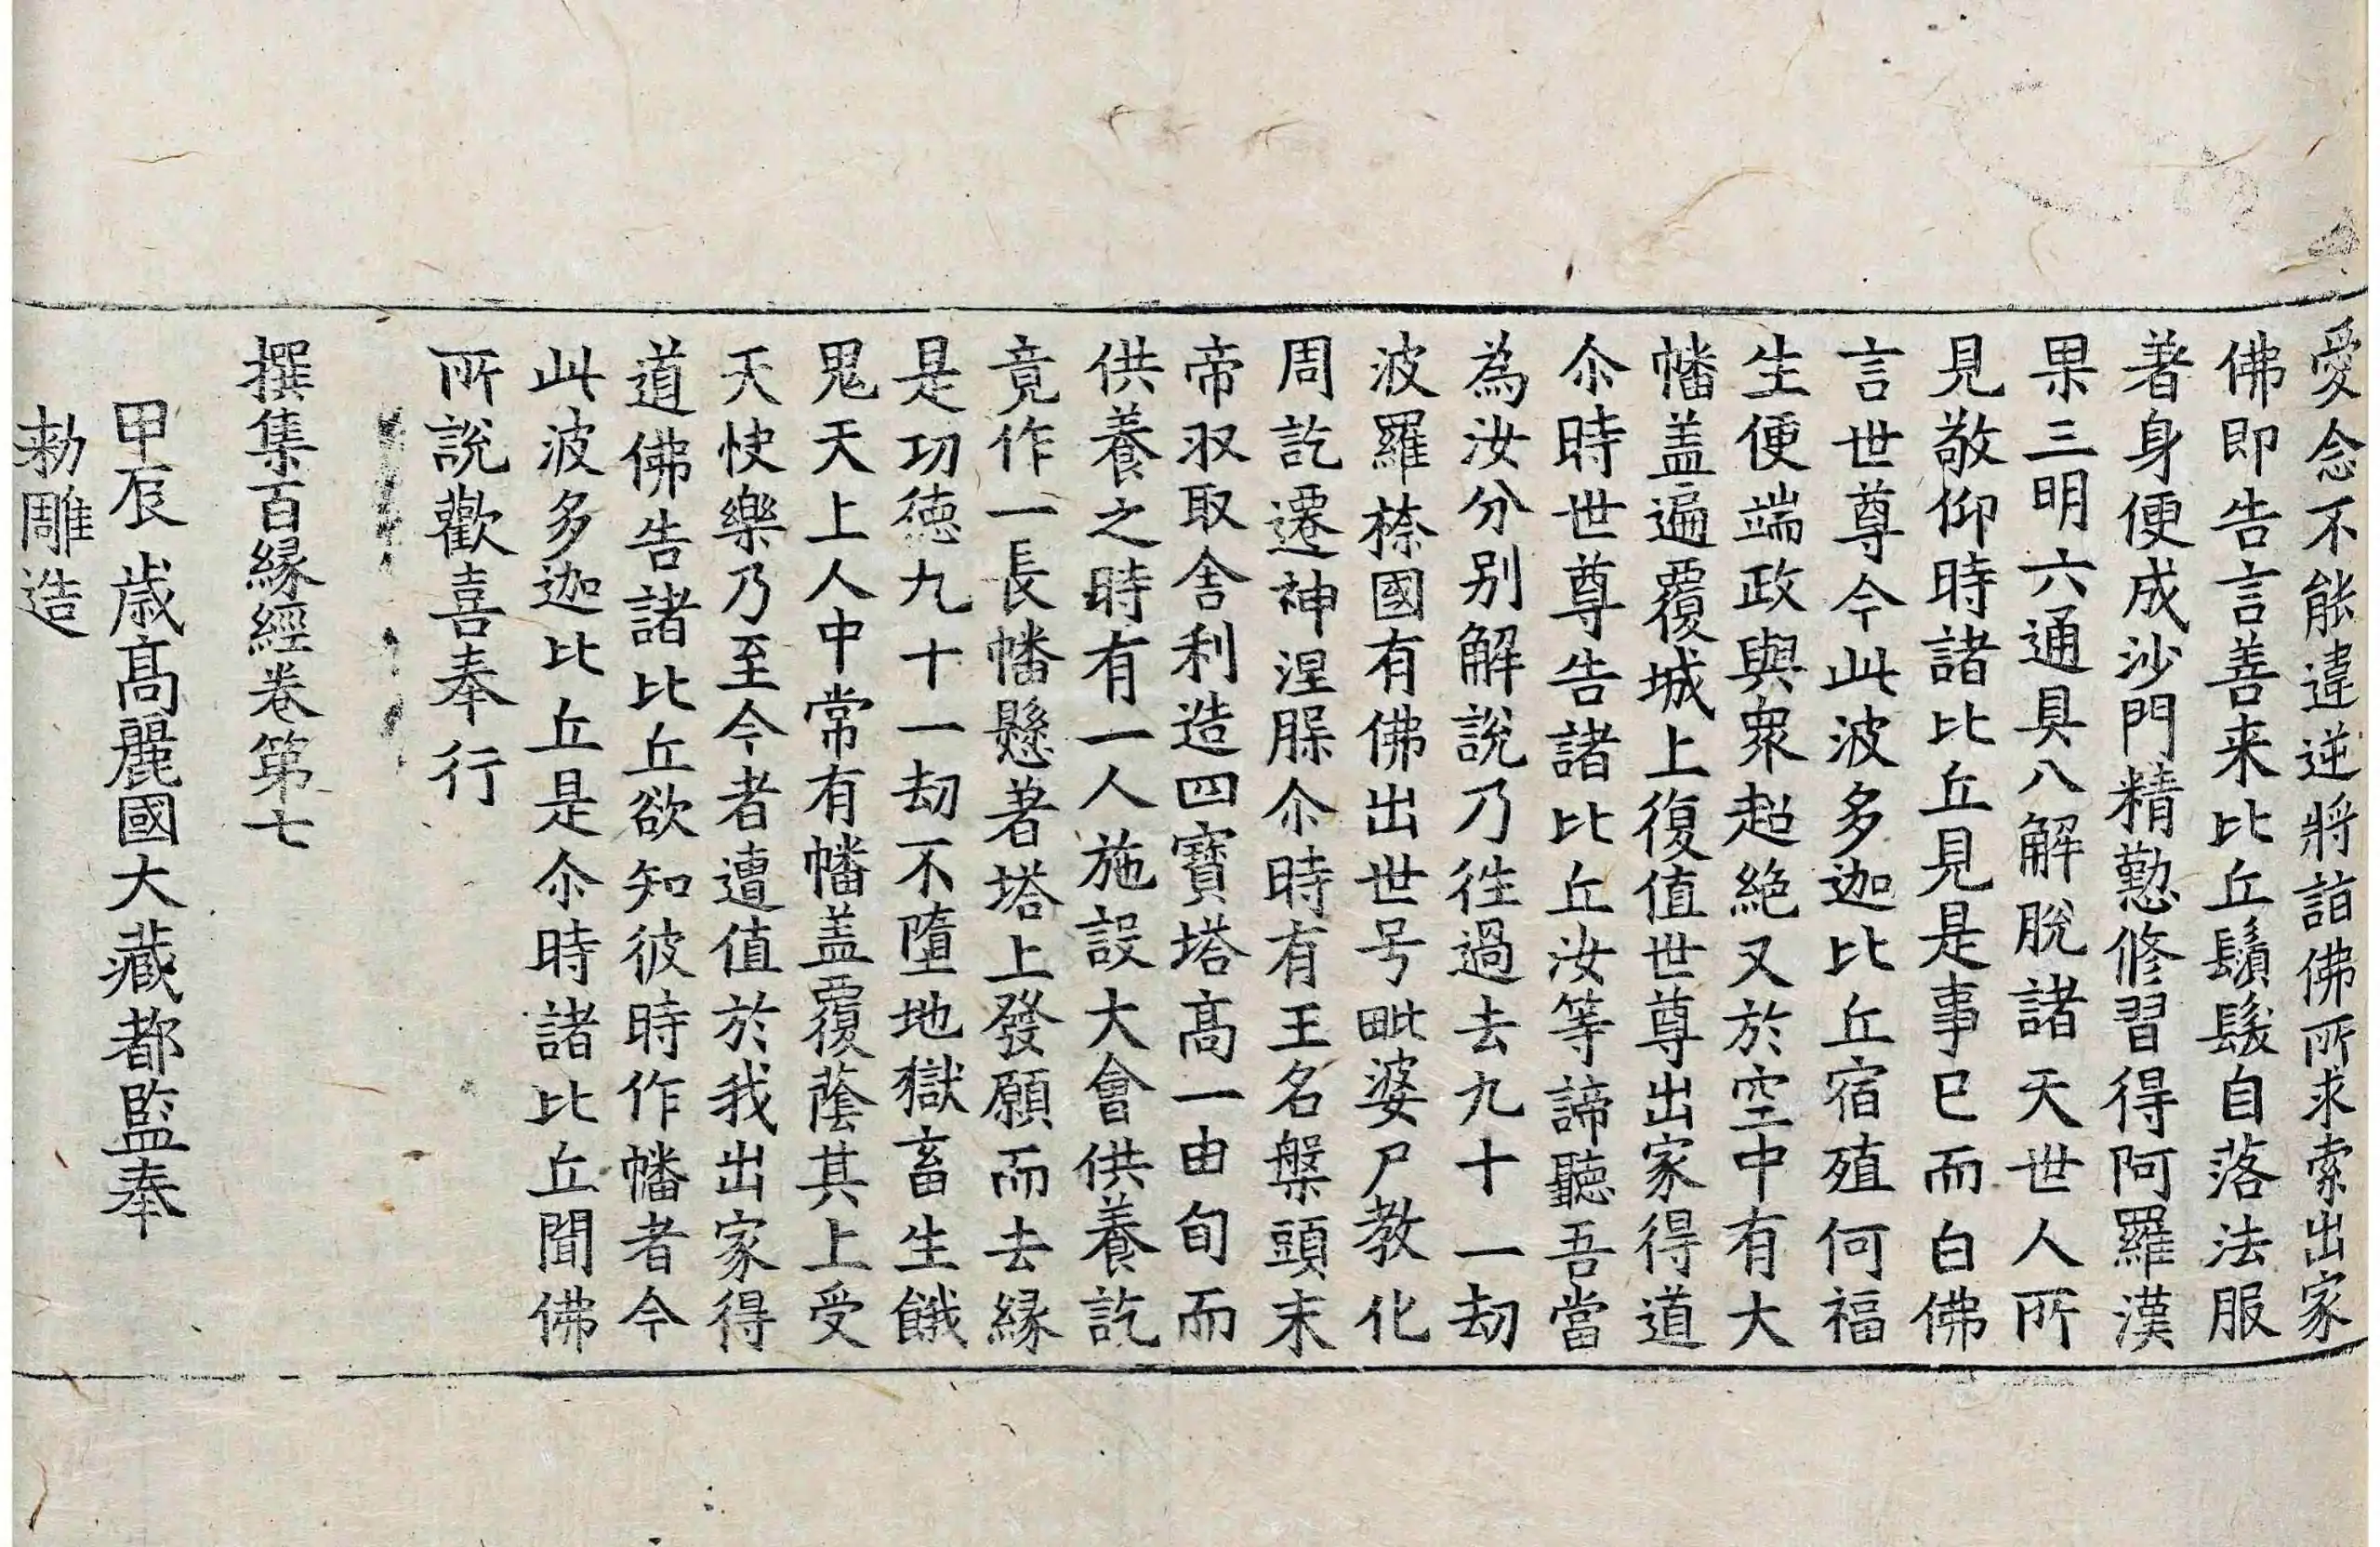 愛念不能違逆將詣佛所求索出家
佛即告言善来比丘鬚髮自落法服
著身便成沙門精懃修習得阿羅漢
果三明六通具八解脫諸天世人所
見敬仰時諸比丘見是事已而白佛
言世尊今此波多迦比丘宿殖何福
生便端政與衆超絶又於空中有大
幡盖遍覆城上復值世尊出家得道
尒時世尊告諸比丘汝等諦聽吾當
為汝分别解說乃徃過去九十一劫
波羅㮈國有佛出世号毗婆尸教化
周訖遷神涅槃尒時有王名槃頭末
帝収取舍利造四寶塔高一由旬而
供養之時有一人施設大會供養訖
竟作一長幡懸著塔上發願而去緣
是功德九十一劫不墮地獄畜生餓
鬼天上人中常有幡盖覆蔭其上受
天快樂乃至今者遭值於我出家得
道佛告諸比丘欲知彼時作幡者今
此波多迦比丘是尒時諸比丘聞佛
所說歡喜奉行
撰集百緣經卷第七
甲辰歲髙麗國大藏都監奉
勅雕造